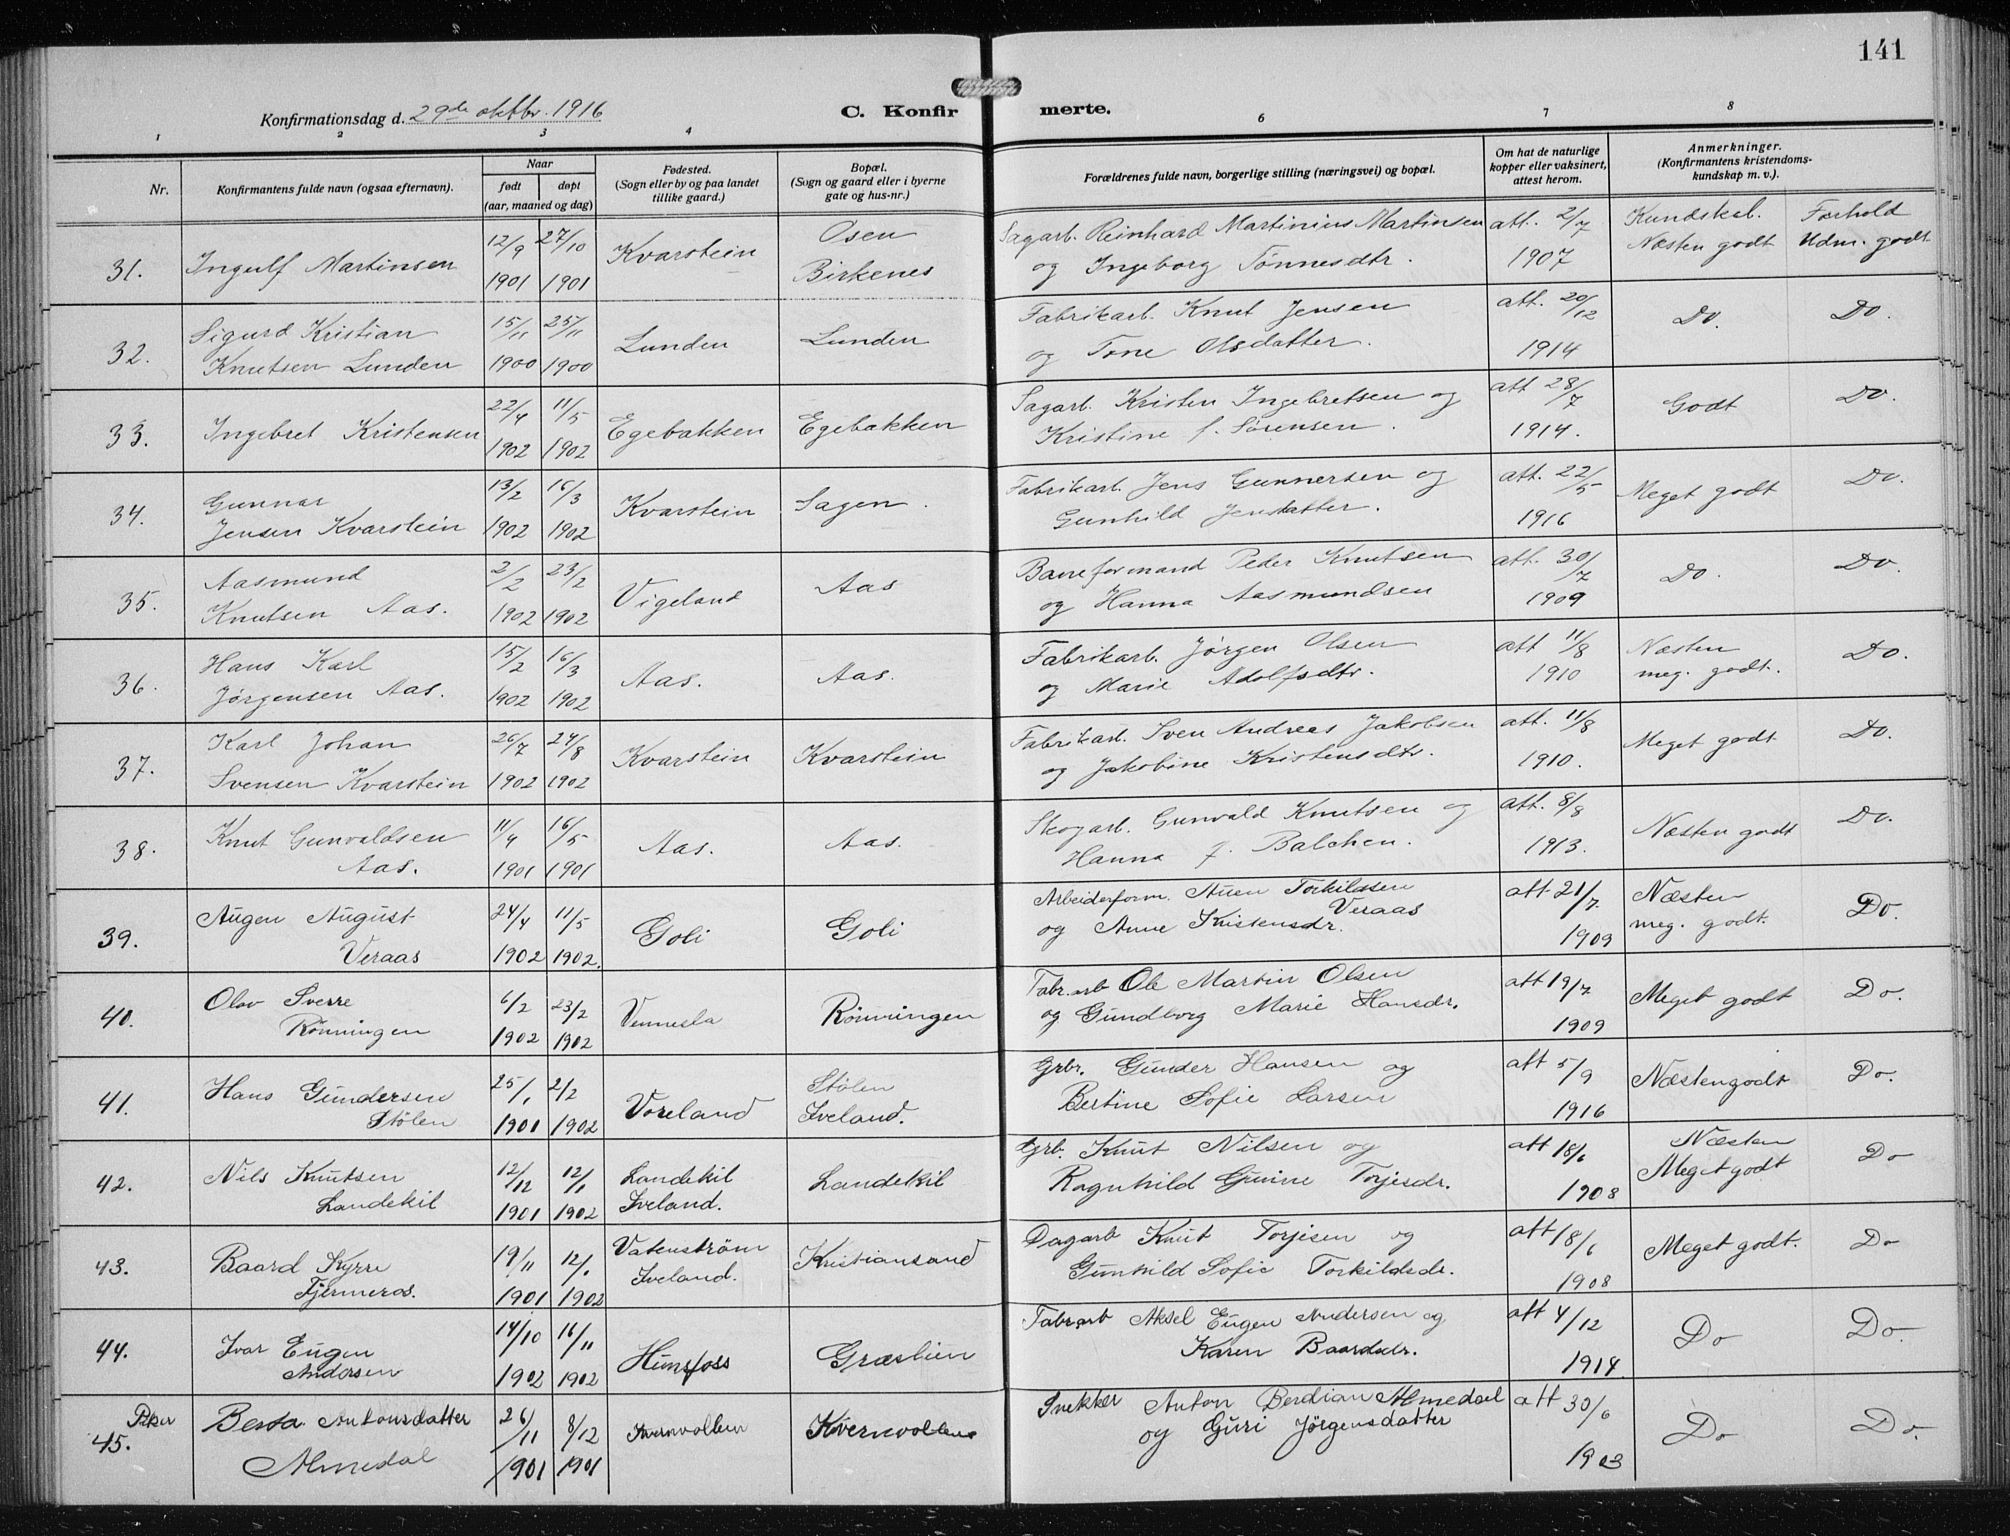 141
Konfirmationsdag d. 29de oktbr. 1916
C. Konfirmerte.
1 2 3 4 6 7 8
Nr.
Konfirmantens fulde navn (ogsaa efternavn).
Naar
født
døpt
(aar, maaned og dag)
Fødested.
(Sogn eller by og paa landet
tillike gaard.)
Bopæl.
(Sogn og gaard eller i byerne
gate og hus-nr.)
Forældrenes fulde navn, borgerlige stilling (næringsvei) og bopæl.
Om hat de naturlige
kopper eller vaksinert,
attest herom.
Anmerkninger.
(Konfirmantens kristendoms-
kundskap m. v.).
31. Ingulf Martinsen 12/9 1901 27/10 1901 Kvarstein Osen Birkenes Sagarb. Reinhard Martinius Martinsen
og Ingeborg Tønnesdtr. att. 2/7 1907 Kundskab. Næsten godt Forhold Udm. godt
32. Sigurd Kristian
Knutsen Lunden 15/11 1900 25/11 1900 Lunden Lunden Fabrikarb. Knut Jensen
og Tone Olsdatter. att. 20/12 1914 Do. Do.
33. Ingebret Kristensen 22/4 1902 11/5 1902 Egebakken Egebakken Sagarb. Kristen Ingebretsen og
Kristine f. Sørensen. att 28/7 1914. Godt Do.
34. Gunnar
Jensen Kvarstein 13/2 1902 16/3 1902 Kvarstein Sagen. Fabrikarb. Jens Gunnersen og
Gunhild Jensdatter. att. 22/5 1916 Meget godt Do.
35. Aasmund
Knutsen Aas. 2/2 1902 23/2 1902 Vigeland Aas Baneformand Peder Knutsen
og Hanna Aasmundsen att. 30/7 1909 Do. Do.
36. Hans Karl
Jørgensen Aas. 15/2 1902 16/3 1902 Aas. Aas. Fabrikarb. Jørgen Olsen
og Marie Adolfsdtr. att 11/8 1910 Næsten
meg. godt. Do.
37. Karl Johan
Svensen Kvarstein 26/7 1902 24/8 1902 Kvarstein Kvarstein Fabrikarb. Sven Andreas Jakobsen
og Jakobine Kristensdtr. att. 11/8 1910. Meget godt Do.
38. Knut Gunvaldsen
Aas. 11/4 1901 16/5 1901 Aas. Aas. Skogarb. Gunvald Knutsen og
Hanna f. Balchen. att. 8/8 1913. Næsten godt Do.
39. Augen August
Veraas 24/4 1902 11/5 1902. Goli Goli Arbeiderform. Auen Torkildsen
Veraas
og Anne Kristensdr. att 21/7 1909 Næsten
meg. godt. Do.
40. Olav Sverre
Rönningen 6/2 1902 23/2 1902 Vennesla Rönningen Fabr.arb Ole Martin Olsen
og Gundborg Marie Hansdr. att 19/7 1909 Meget godt Do.
41. Hans Gundersen
Stölen 25/1 1901 2/2 1902 Voreland Stölen
Iveland. Grbr. Gunder Hansen og
Bertine Sofie Larsen att 5/9 1916 Næsten godt Do.
42. Nils Knutsen
Landekil 12/12 1901 12/1 1902 Landekil
Iveland. Landekil Grb. Knut Nilsen og
Ragnhild Gurine Torjesdr. att 18/6 1908 Næsten
Meget godt Do
43. Baard Kyrre
Fjermeros. 19/11 1901 12/1 1902 Vatenström
Iveland. Kristiansand Dagarb Knut Torjesen og
Gunhild Sofie Torkildsdr. att 18/6 1908 Meget godt. Do
44. Ivar Eugen
Andersen 14/10 1902 16/11 1902 Hunsfoss Græslien Fabr.arb Aksel Eugen Andersen og
Karen Baardsdr. att 4/12 1914 Do Do.
Piker
45. Berta Antonsdatter
Almedal 26/11 1901 8/12 1901 Kvernvollen Kvernvollene Snekker Anton Berdian Almedael
og Guri Jörgensdatter att 30/6 1903 Do Do.